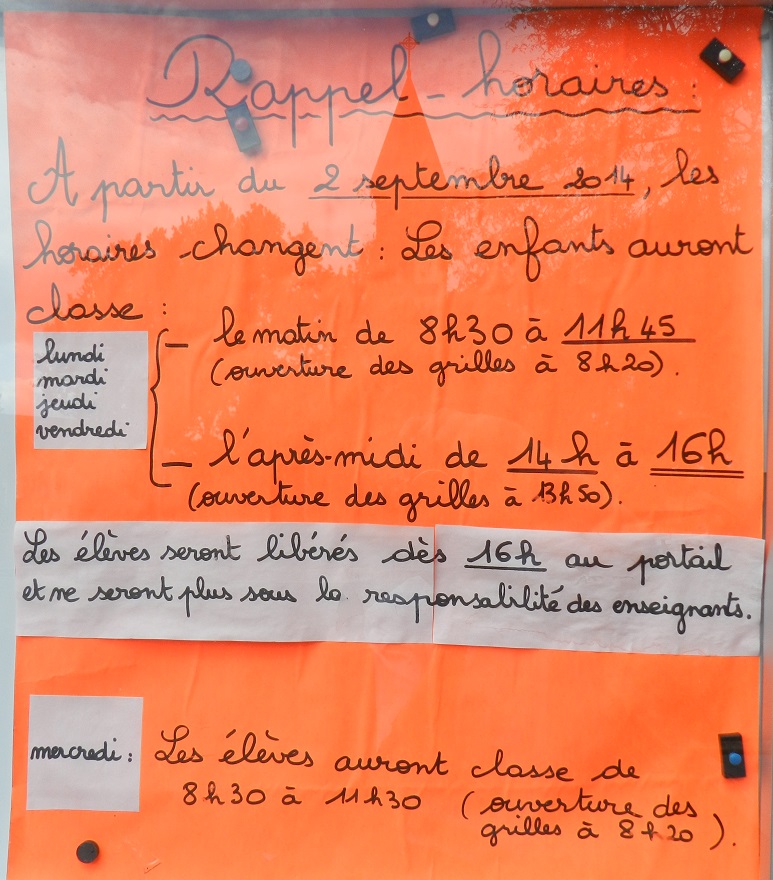 Rappel - horaires :
A partir du 2 septembre 2014, les
horaires changent : Les enfants auront
classe :
lundi
mardi
jeudi
vendredi
— le matin de 8h30 à 11h45
(ouverture des grilles à 8h20).
— l'après-midi de 14h à 16h
(ouverture des grilles à 13h50).
Les élèves seront libérés dès 16h au portail
et ne seront plus sous la responsabilité des enseignants.
mercredi : Les élèves auront classe de
8h30 à 11h30 (ouverture des
grilles à 8h20).